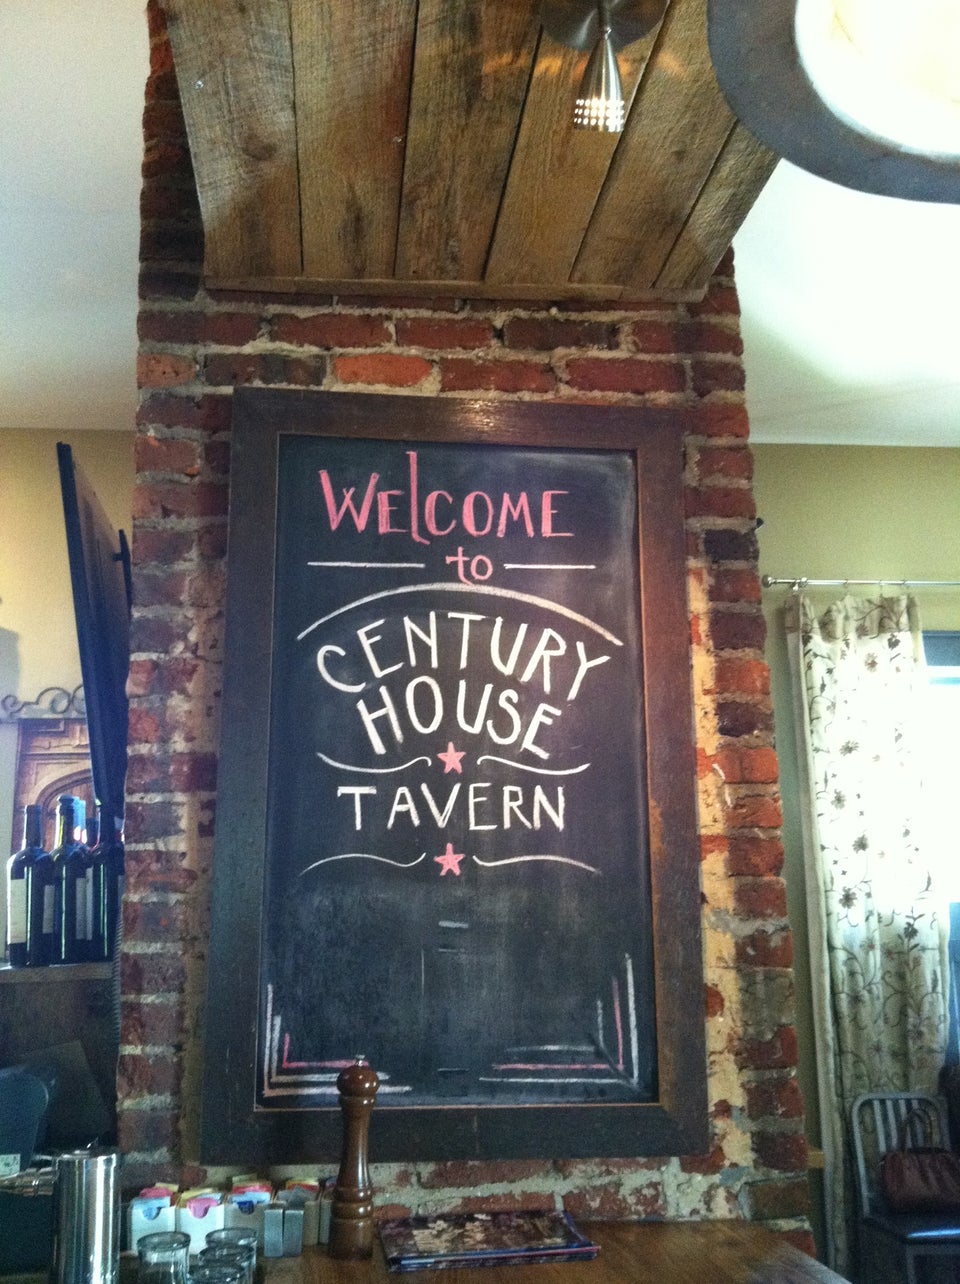 WElCOME
to
CENTURY
HOUSE
TAVERN